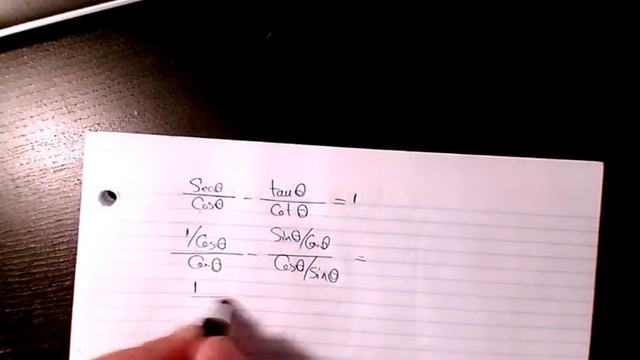 Secθ/Cosθ - tanθ/Cotθ = 1
1/Cosθ/Cosθ - Sinθ/Cosθ/Cosθ/Sinθ =
1